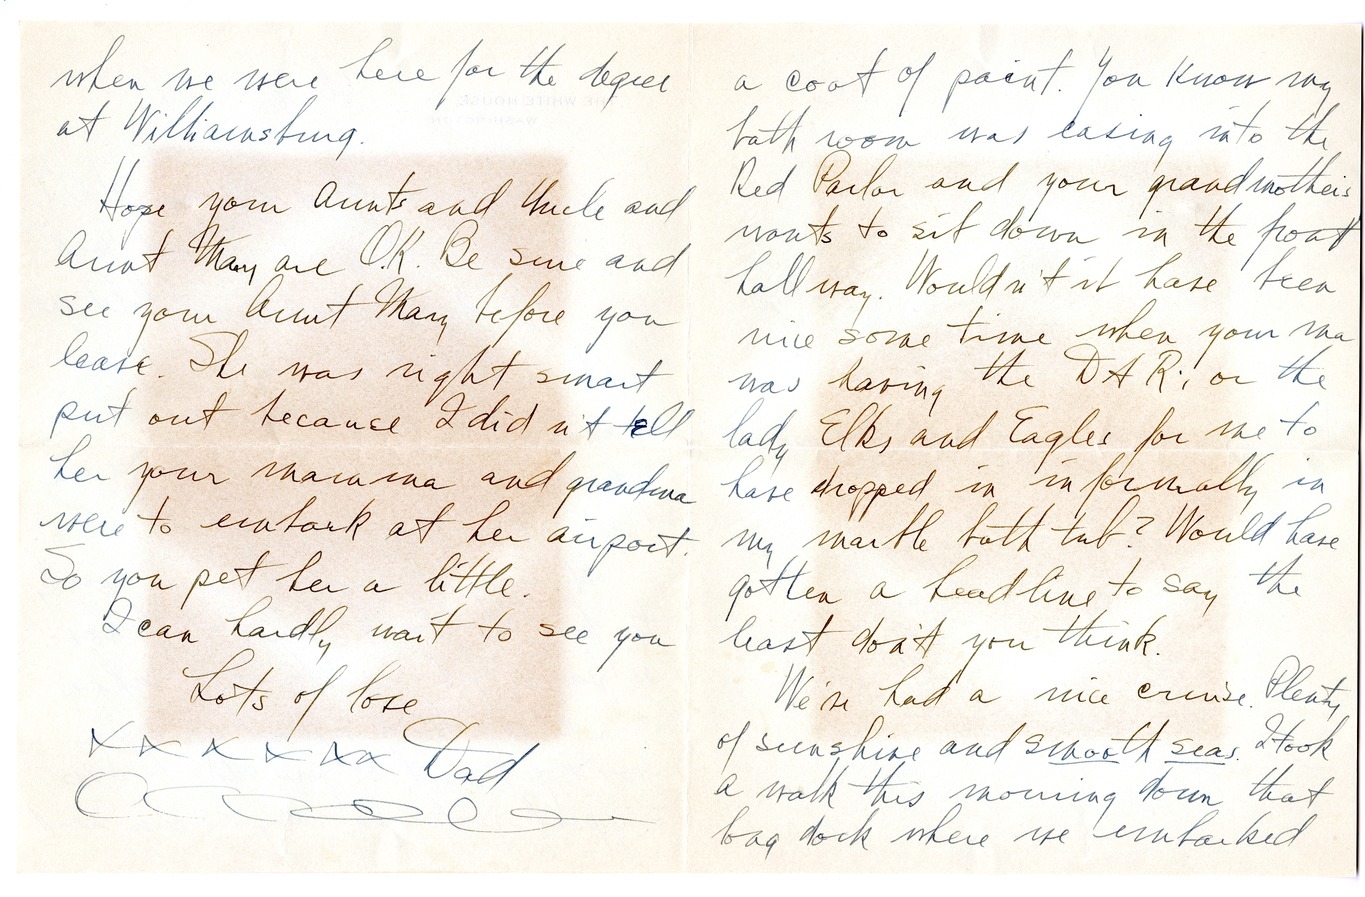 a coat of paint. You know my
bath room was easing into the
Red Parlor and your grandmothers
wants to sit down in the front
hall way. Wouldn't it have been
nice some time when your ma
was having the D A R., or the
lady Elks and Eagles for me to
have dropped in informally in
my marble bath tub? Would have
gotten a headline to say the
least don't you think.
We've had a nice cruise. Plenty
of sunshine and smooth seas. I took
a walk this morning down that
long dock where we embarked
when we were here for the degree
at Williamsburg.
Hope your Aunts and Uncle and
Aunt Mary are O.K. Be sure and
see your Aunt Mary before you
leave. She was right smart
put out because I didn't tell
her your mamma and grandma
were to embark at her airport.
So you pet her a little.
I can hardly wait to see you
Lots of love
XX X X XX Dad